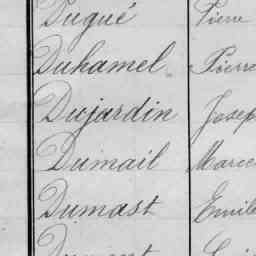 Dugué Pierre
Duhamel Pierre
Dujardin Josep
Dumail Marce
Dumast Emile